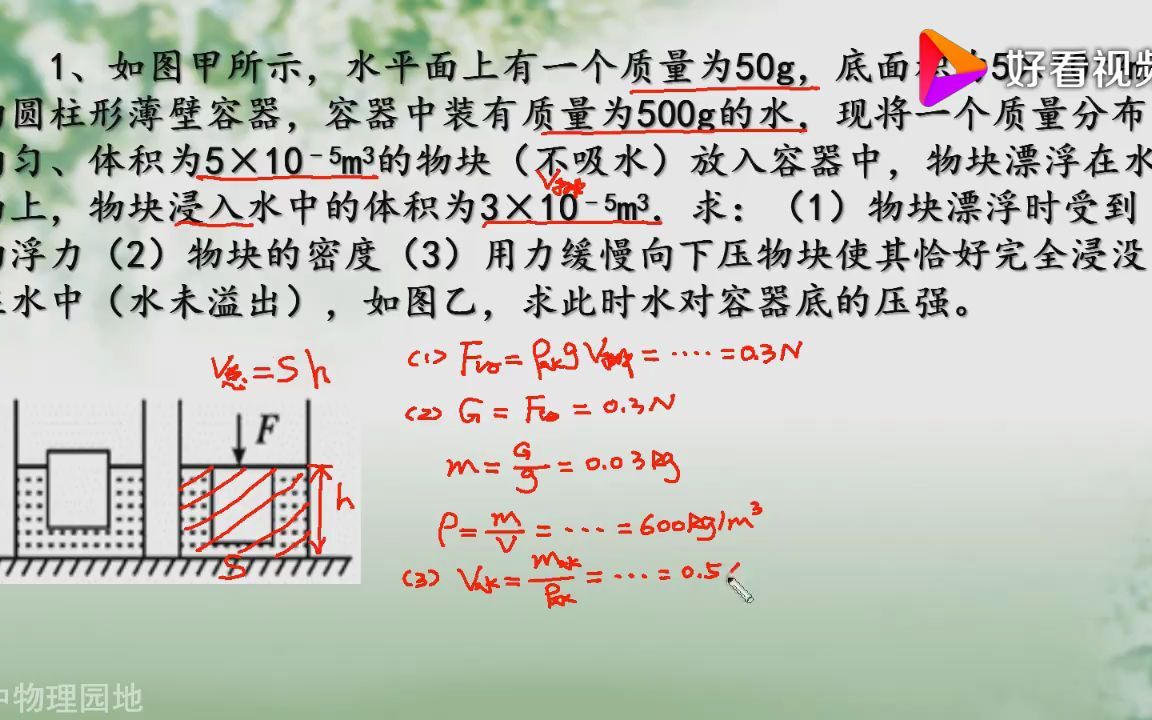 1、如图甲所示，水平面上有一个质量为50g，底面
好看视频
圆柱形薄壁容器，容器中装有质量为500g的水，现将一个质量分布
匀、体积为5×10⁻⁵m³的物块（不吸水）放入容器中，物块漂浮在水
上，物块浸入水中的体积为3×10⁻⁵m³．求：（1）物块漂浮时受到
浮力（2）物块的密度（3）用力缓慢向下压物块使其恰好完全浸没
水中（水未溢出），如图乙，求此时水对容器底的压强。
V总=Sh
(1) F浮=ρ水gV排=....=0.3N
(2) G=F浮=0.3N
m=G/g=0.03kg
ρ=m/V=...=600kg/m³
(3) V水=m水/ρ水=...=0.5
F
h
S
物理园地